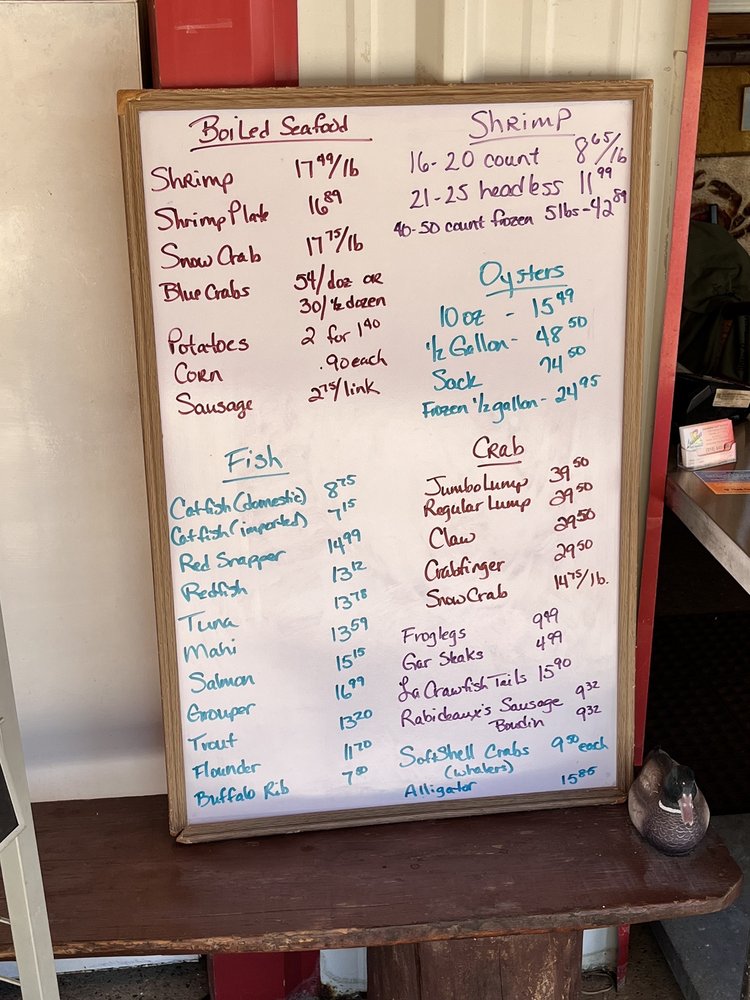 Boiled Seafood
Shrimp 17 49/lb
Shrimp Plate 16 89
Snow Crab 17 75/lb
Blue Crabs 54/doz or
30/½ dozen
Potatoes 2 for 1 40
Corn .90 each
Sausage 2 75/link
Fish
Catfish (domestic) 8 75
Catfish (imported) 7 15
Red Snapper 14 99
Redfish 13 12
Tuna 13 78
Mahi 13 59
Salmon 15 15
Grouper 16 99
Trout 13 20
Flounder 11 70
Buffalo Rib 7 80
Shrimp
16-20 count 8 65/lb
21-25 headless 11 99
40-50 count frozen 5lbs-42 89
Oysters
10 oz - 15 49
½ Gallon - 48 50
Sack 74 50
Frozen ½ gallon - 24 95
Crab
Jumbo Lump 39 50
Regular Lump 29 50
Claw 29 50
Crabfinger 29 50
Snow Crab 14 75/lb.
Froglegs 9 49
Gar Steaks 4 99
La Crawfish Tails 15 90
Rabideaux's Sausage 9 32
Boudin 9 32
Softshell Crabs 9 50 each
(whalers)
Alligator 15 85